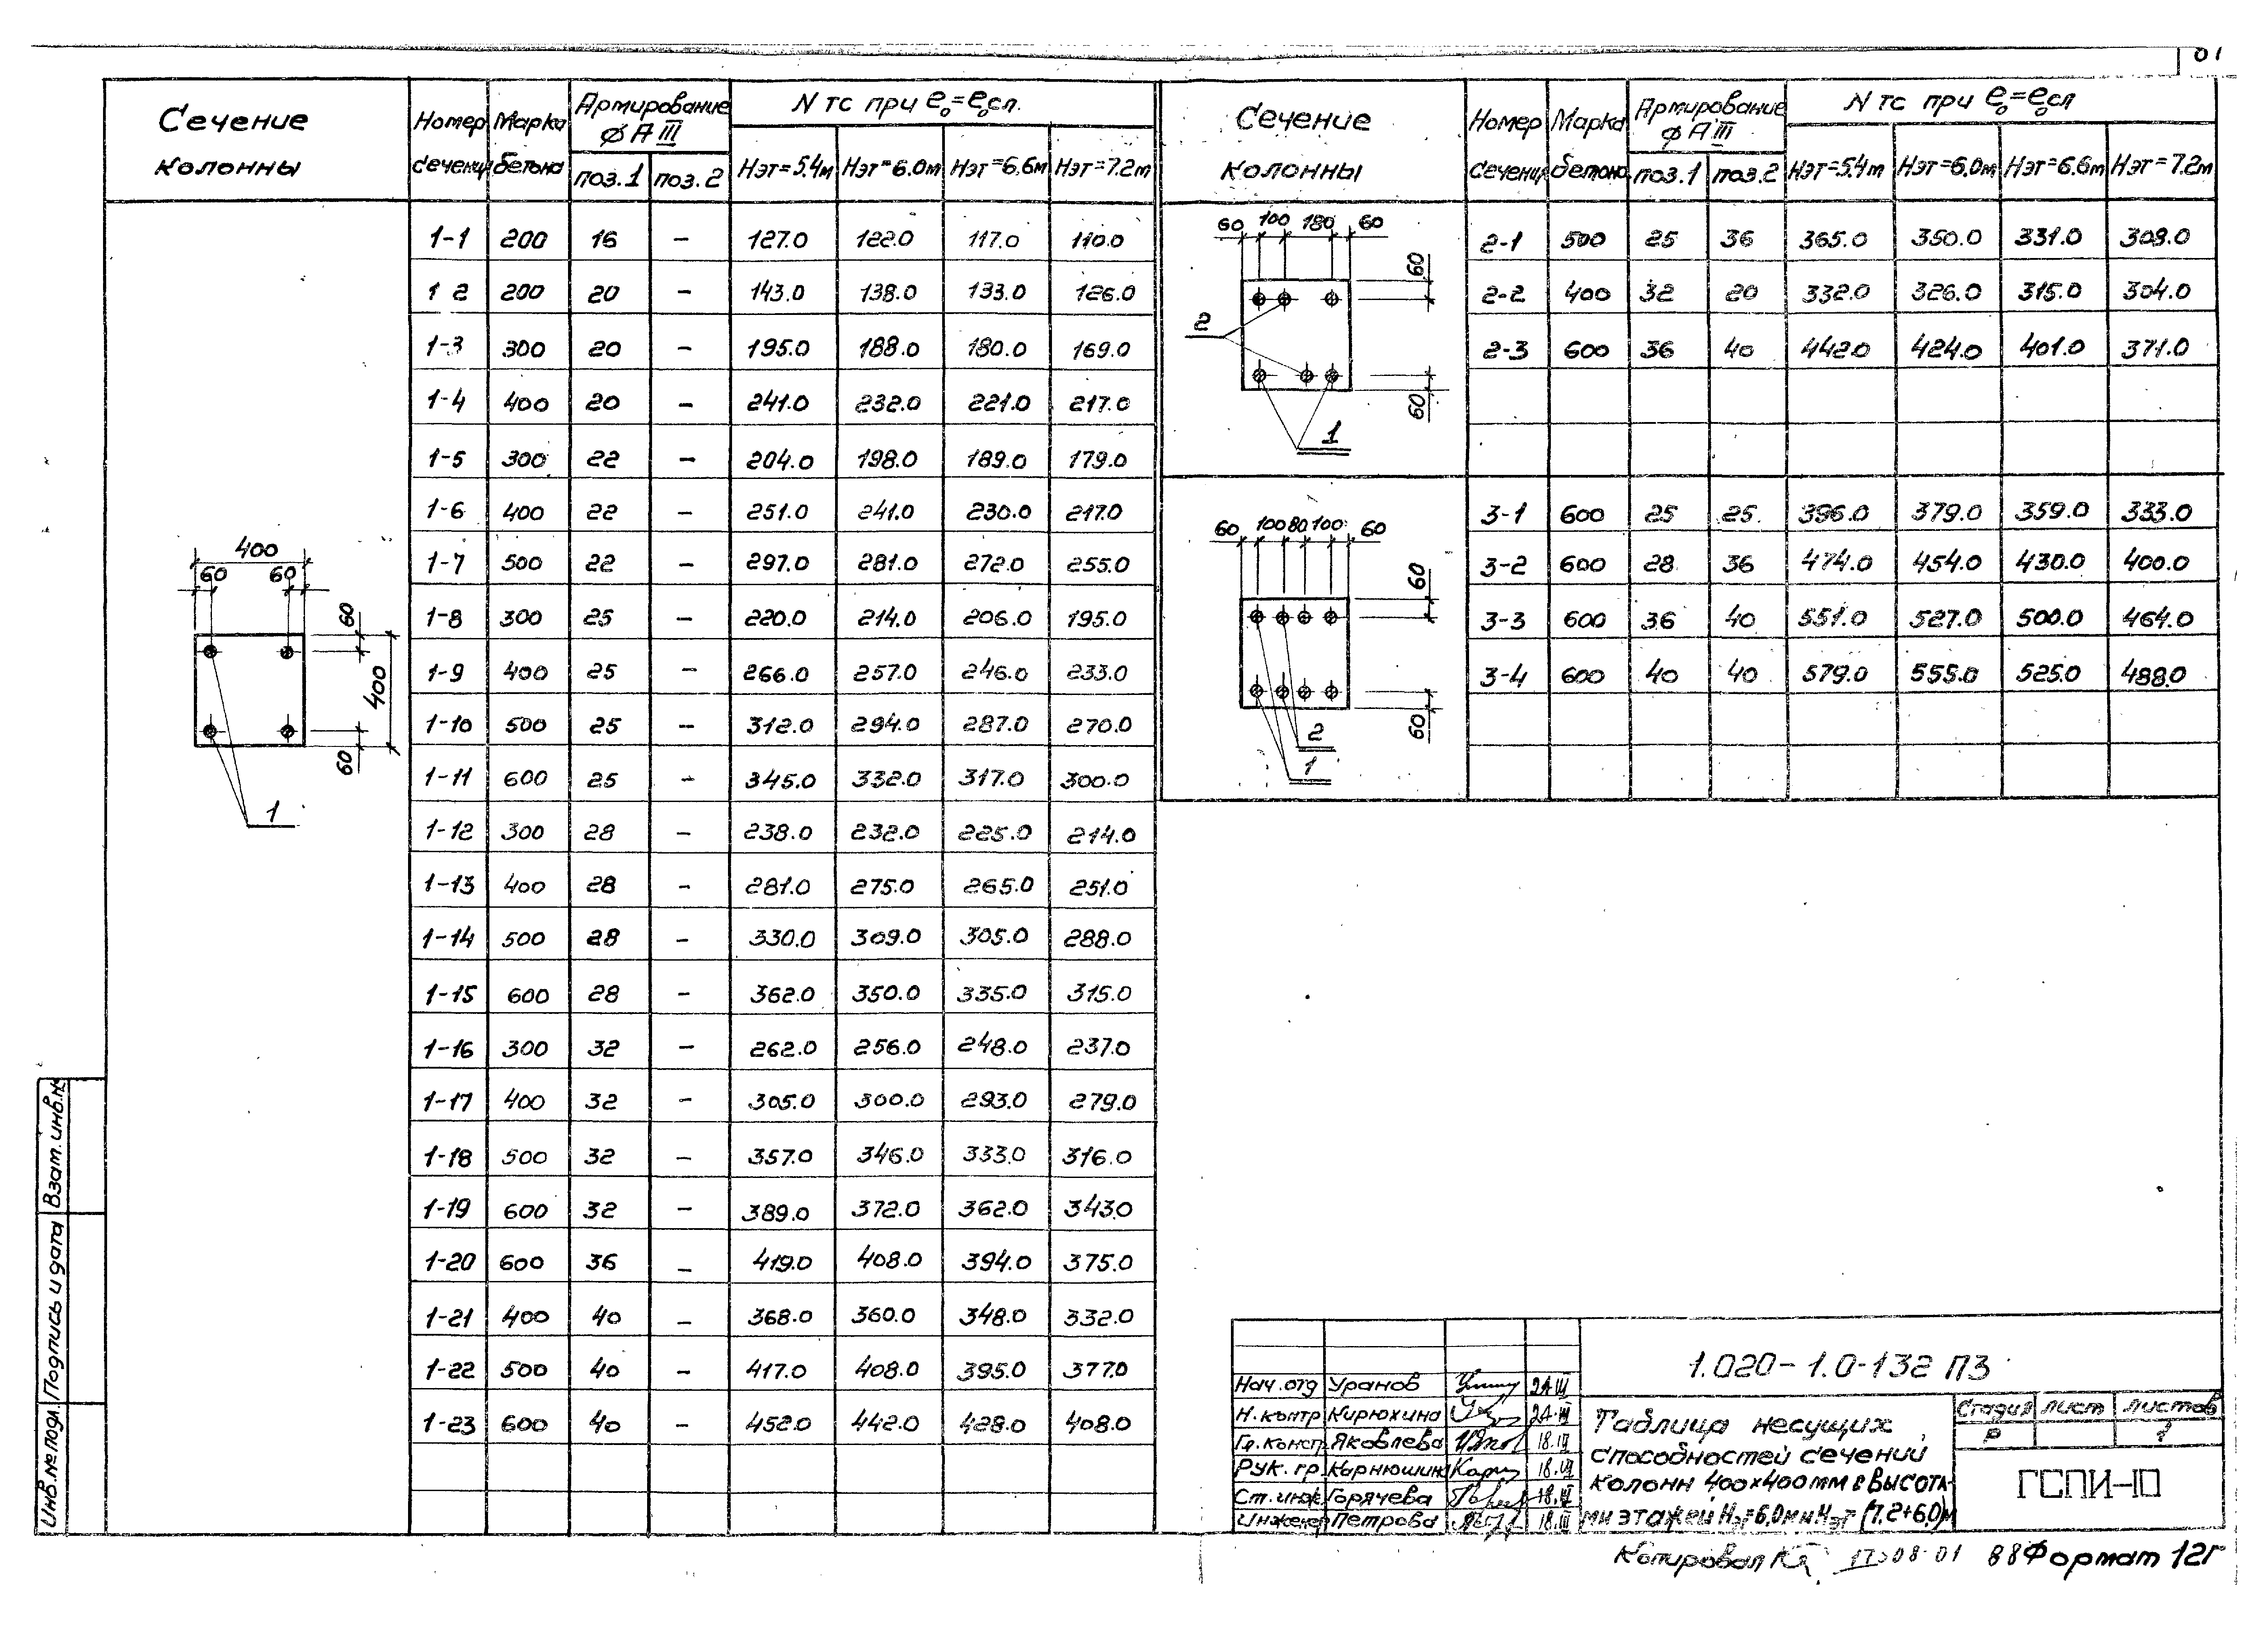 01
Сечение колонны | Номер сечения | Марка бетона | Армирование ϕ А III | N тс при e₀=e₀сл.
поз.1 | поз.2 | Нэт=5.4м | Нэт=6.0м | Нэт=6.6м | Нэт=7.2м
1-1 200 16 – 127.0 122.0 117.0 110.0
1 2 200 20 – 143.0 138.0 133.0 126.0
1-3 300 20 – 195.0 188.0 180.0 169.0
1-4 400 20 – 241.0 232.0 221.0 217.0
1-5 300 22 – 204.0 198.0 189.0 179.0
1-6 400 22 – 251.0 241.0 230.0 217.0
1-7 500 22 – 297.0 281.0 272.0 255.0
1-8 300 25 – 220.0 214.0 206.0 195.0
1-9 400 25 – 266.0 257.0 246.0 233.0
1-10 500 25 – 312.0 294.0 287.0 270.0
1-11 600 25 – 345.0 332.0 317.0 300.0
1-12 300 28 – 238.0 232.0 225.0 214.0
1-13 400 28 – 281.0 275.0 265.0 251.0
1-14 500 28 – 330.0 309.0 305.0 288.0
1-15 600 28 – 362.0 350.0 335.0 315.0
1-16 300 32 – 262.0 256.0 248.0 237.0
1-17 400 32 – 305.0 300.0 293.0 279.0
1-18 500 32 – 357.0 346.0 333.0 316.0
1-19 600 32 – 389.0 372.0 362.0 343.0
1-20 600 36 – 419.0 408.0 394.0 375.0
1-21 400 40 – 368.0 360.0 348.0 332.0
1-22 500 40 – 417.0 408.0 395.0 377.0
1-23 600 40 – 452.0 442.0 428.0 408.0
400
60 60
60
400
60
1
Сечение колонны | Номер сечения | Марка бетона | Армирование ϕ А III | N тс при e₀=e₀сл
поз.1 | поз.2 | Нэт=5.4м | Нэт=6.0м | Нэт=6.6м | Нэт=7.2м
60 100 180 60
60
2
60
1
2-1 500 25 36 365.0 350.0 331.0 308.0
2-2 400 32 20 332.0 326.0 315.0 304.0
2-3 600 36 40 442.0 424.0 401.0 371.0
60 100 80 100 60
60
60
2
1
3-1 600 25 25 396.0 379.0 359.0 333.0
3-2 600 28 36 474.0 454.0 430.0 400.0
3-3 600 36 40 551.0 527.0 500.0 464.0
3-4 600 40 40 579.0 555.0 525.0 488.0
Инв.№ подл. Подпись и дата Взам.инв.№
1.020-1.0-132 ПЗ
Нач.отд Уранов 24.III
Н.контр Кирюхина 24.III
Гл.констр Яковлева 18.III
Рук.гр. Корнюшин 18.III
Ст.инж Горячева 18.III
Инженер Петрова 18.III
Таблица несущих
способностей сечений
колонн 400х400мм с высота-
ми этажей Нэт=6,0м и Нэт=(7,2+6,0)м
Стадия Лист Листов
Р
ГСПИ-10
Копировал 08-01 88 Формат 12Г